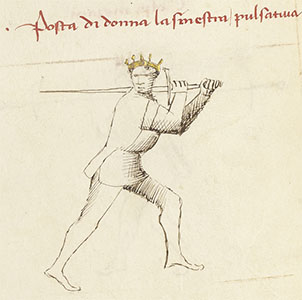 . Posta di donna la sinestra / pulsativa